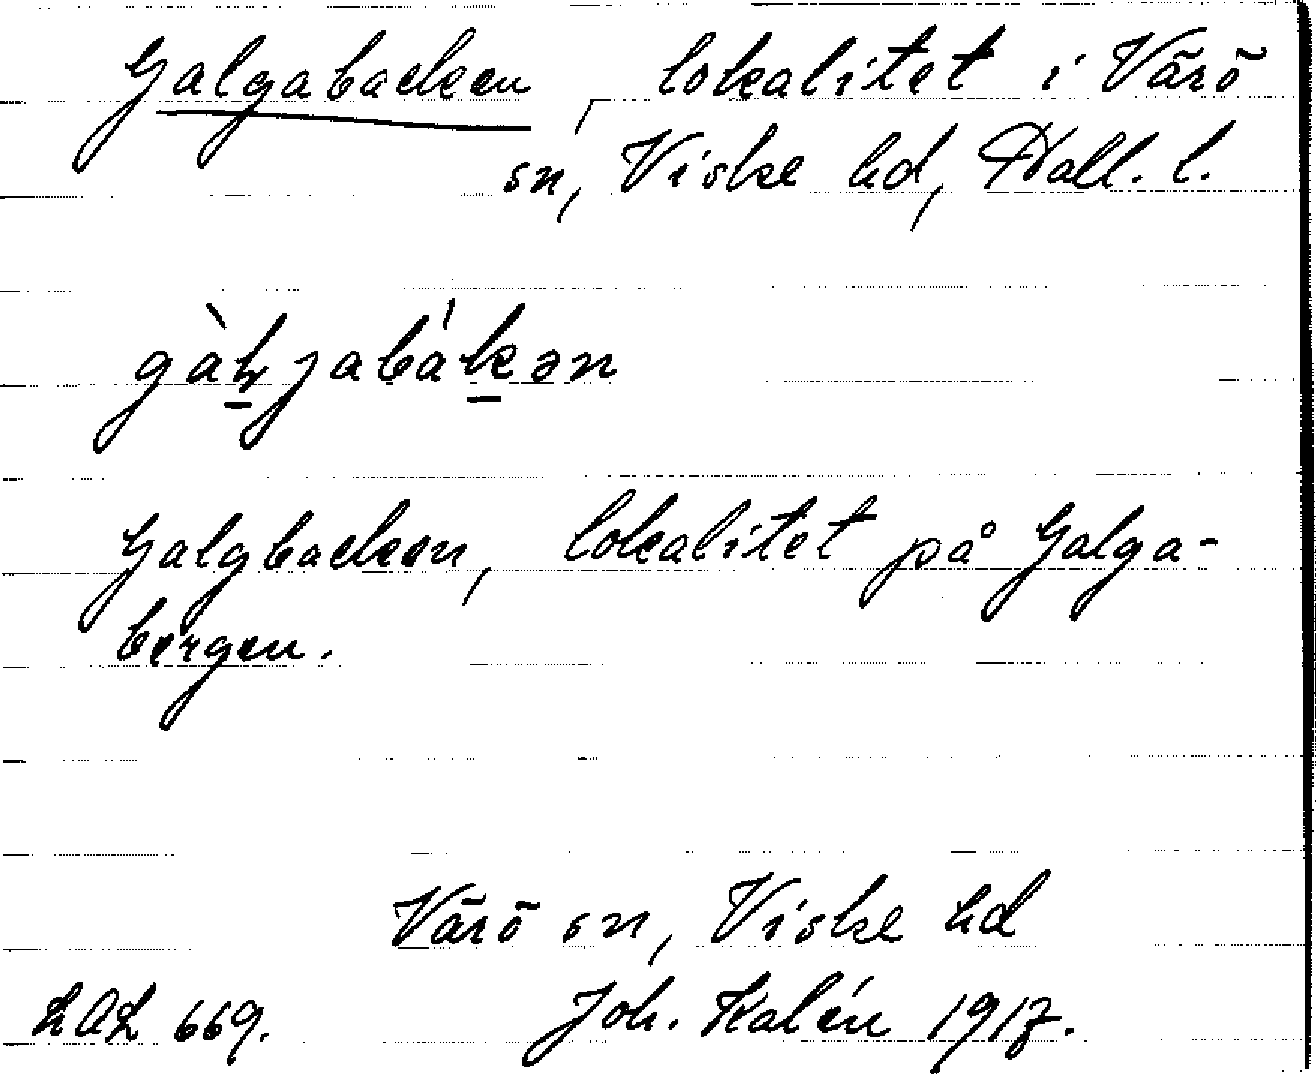 Galgabacken, lokalitet i Värö
sn, Viske hd, Hall. l.
gàḻjabákən
Galgbacken, lokalitet på Galga-
bergen.
Värö sn, Viske hd
LAL 669. Joh. Kalén 1917.